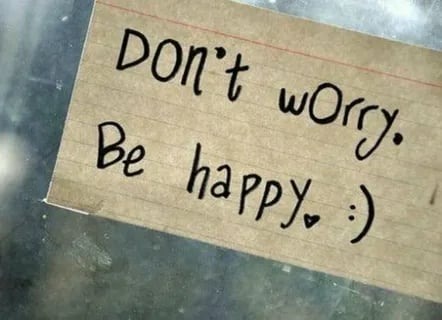 DON't wOrry.
Be happy. :)